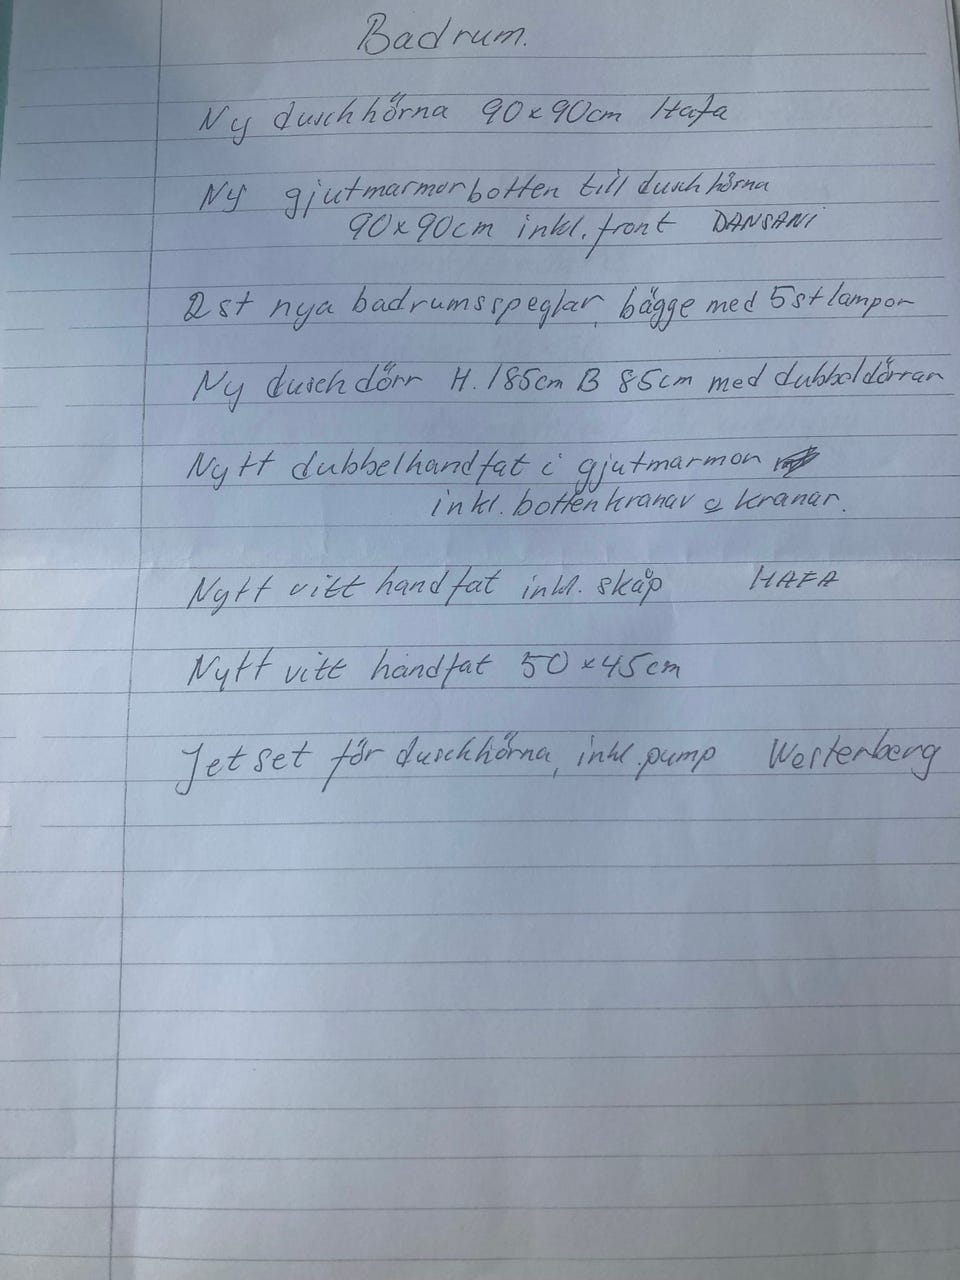 Badrum.
Ny duschhörna 90x90cm Hafa
Ny gjutmarmorbotten till duschhörna
90x90cm inkl. front DANSANI
2 st nya badrumsspeglar, bägge med 5st lampor
Ny duschdörr H. 185cm B 85cm med dubbeldörrar
Nytt dubbelhandfat i gjutmarmor
inkl. bottenkranar o kranar.
Nytt vitt handfat inkl. skåp HAFA
Nytt vitt handfat 50x45cm
Jetset för duschhörna, inkl. pump Westerberg